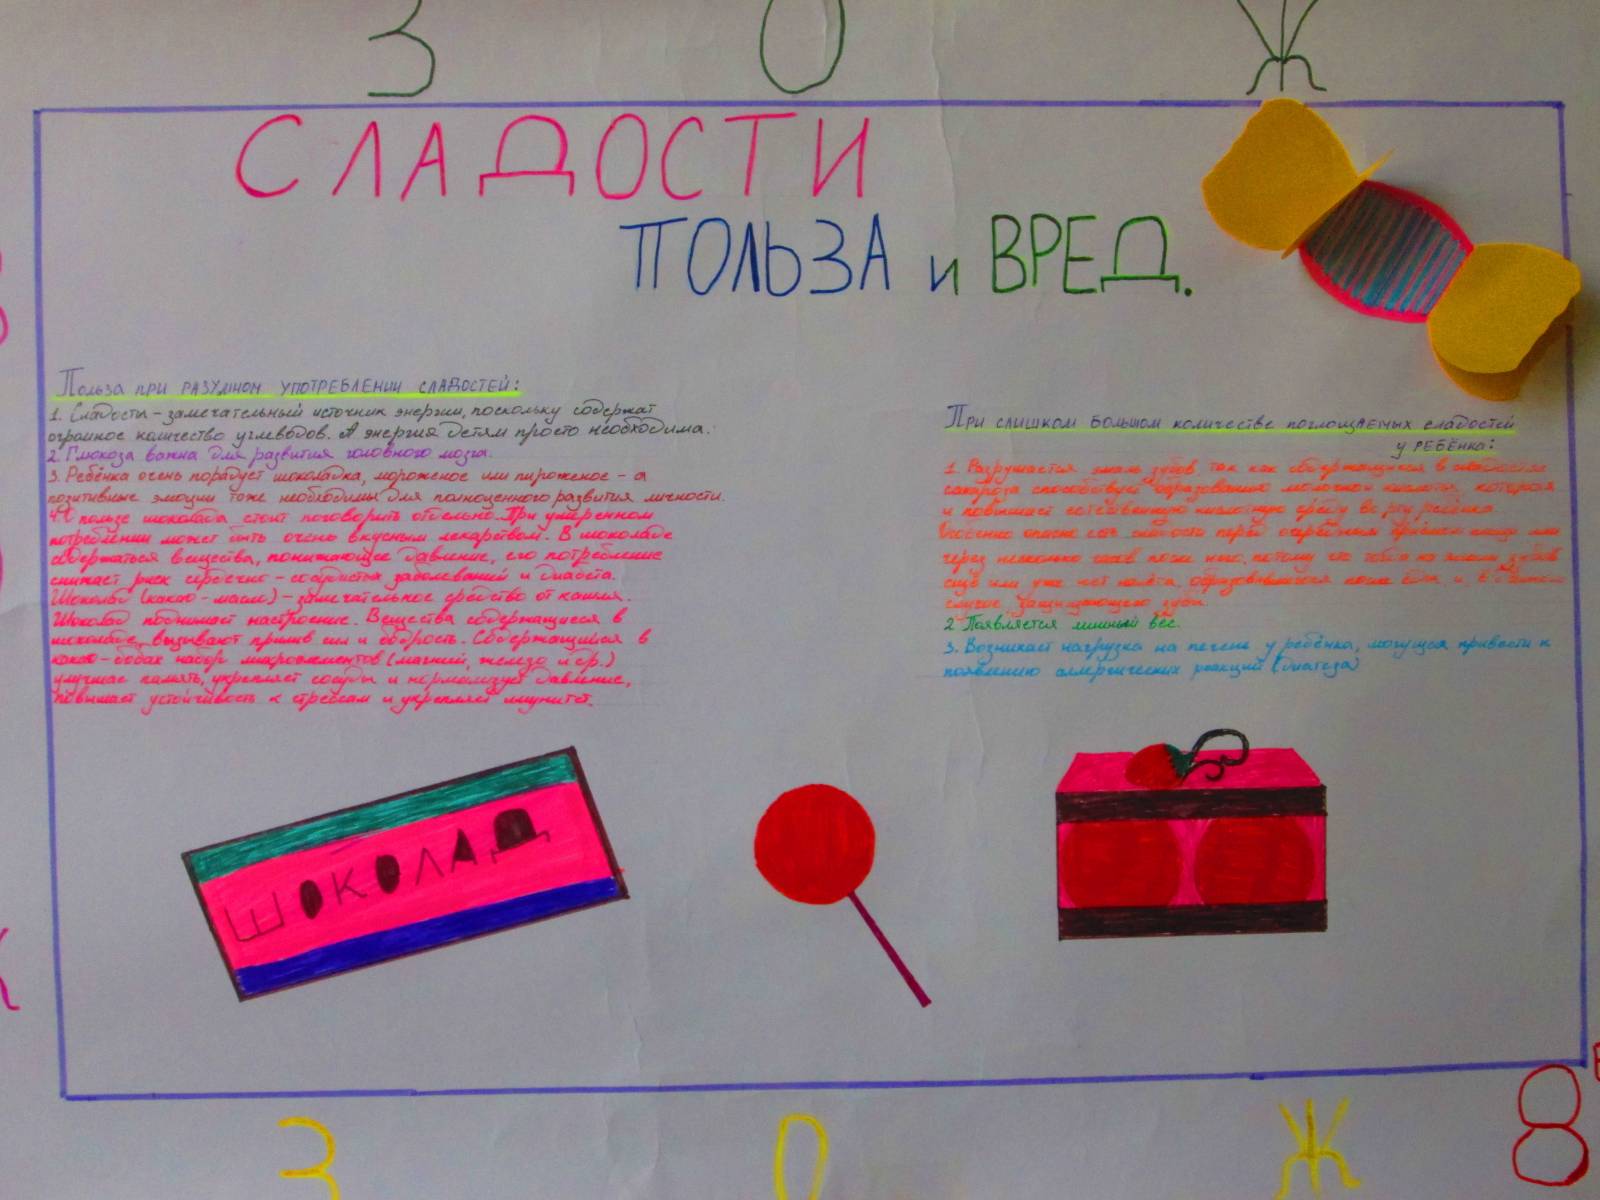 З О Ж
СЛАДОСТИ
ПОЛЬЗА и ВРЕД.
Польза при разумном употреблении сладостей:
1. Сладости – замечательный источник энергии, поскольку содержат
огромное количество углеводов. А энергия детям просто необходима.
2. Глюкоза важна для развития головного мозга.
3. Ребёнка очень порадует шоколадка, мороженое или пироженое – а
позитивные эмоции тоже необходимы для полноценного развития личности.
4. О пользе шоколада стоит поговорить отдельно. При умеренном
потреблении может быть очень вкусным лекарством. В шоколаде
содержаться вещества, понижающие давление, его потребление
снижает риск сердечно – сосудистых заболеваний и диабета.
Шоколад (какао – масло) – замечательное средство от кашля.
Шоколад поднимает настроение. Вещества содержащиеся в
шоколаде, вызывают прилив сил и бодрость. Содержащийся в
какао-бобах набор микроэлементов (магний, железо и др.)
улучшает память, укрепляет сосуды и нормализует давление,
повышает устойчивость к стрессам и укрепляет имунитет.
При слишком большом количестве поглощаемых сладостей
у ребёнка:
1. Разрушается эмаль зубов, так как содержащаяся в сладостях
сахароза способствует образованию молочной кислоты, которая
и повышает естественную кислотную среду во рту ребёнка.
Особенно опасно есть сладости перед очередным приёмом пищи или
через несколько часов после него, потому что тогда на эмали зубов
ещё или уже нет налёта, образовавшегося после еды, и, в данном
случае, защищающего зубы.
2. Появляется лишний вес.
3. Возникает нагрузка на печень у ребёнка, могущая привести к
появлению аллергических реакций (диатеза)
ШОКОЛАД
З О Ж
8